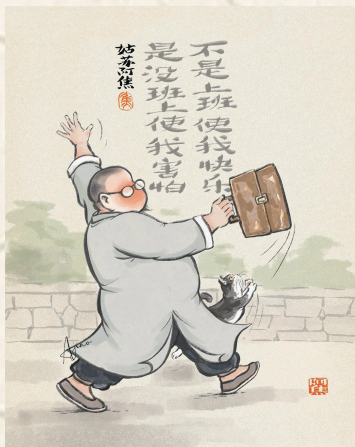 不是上班使我快乐
是没班上使我害怕
姑苏阿焦